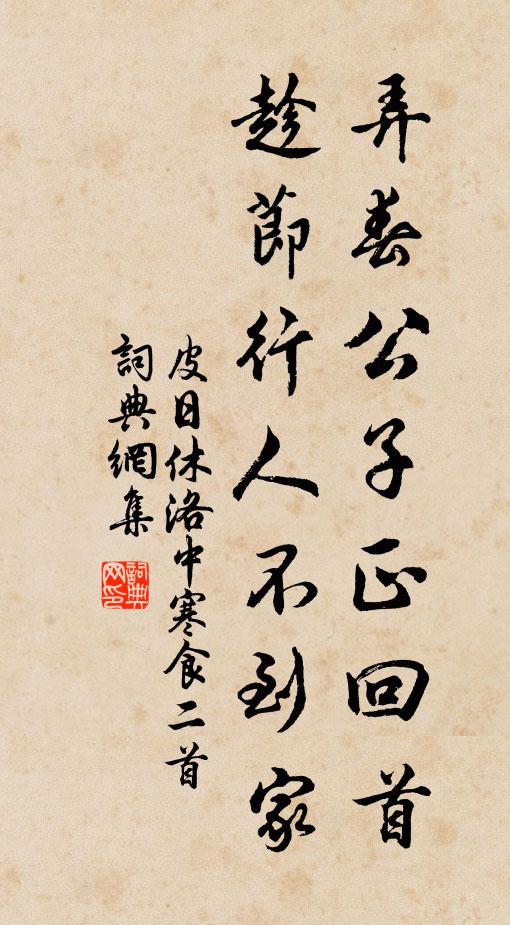 弄春公子正回首
趁節行人不到家
皮日休洛中寒食二首
詞典網集
詞典网印